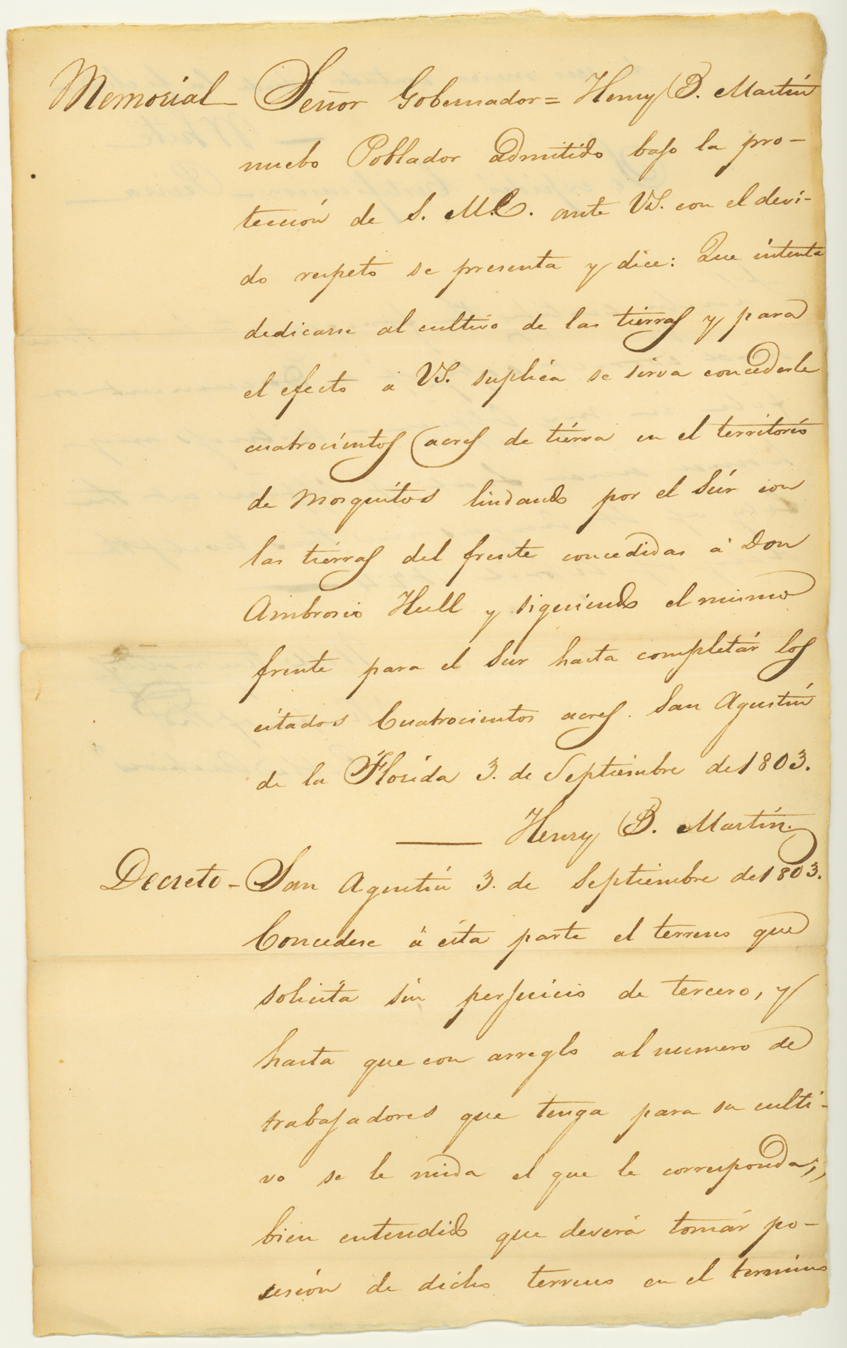 Memorial Señor Gobernador = Henry B. Martin
nuebo Poblador admitido bajo la pro-
tección de S. M.C. ante VS. con el devi-
do respeto se presenta y dice: Que intenta
dedicarse al cultivo de las tierras y para
el efecto á VS. suplica se sirva concederle
cuatrocientos acres de tierra en el territorio
de Mosquitos lindando por el Súr con
las tierras del frente concedidas á Don
Ambrosio Hull y siguiendo el mismo
frente para el Sur hasta completár los
citados Cuatrocientos acres. San Agustin
de la Florida 3. de Septiembre de 1803.
Henry B. Martin.
Decreto - San Agustin 3. de Septiembre de 1803.
Concedese á esta parte el terreno que
solicita sin perjuicio de tercero, y
hasta que con arreglo al numero de
trabajadores que tenga para su culti-
vo se le mida el que le corresponda;
bien entendido que deverá tomár po-
sesión de dicho terreno en el termino